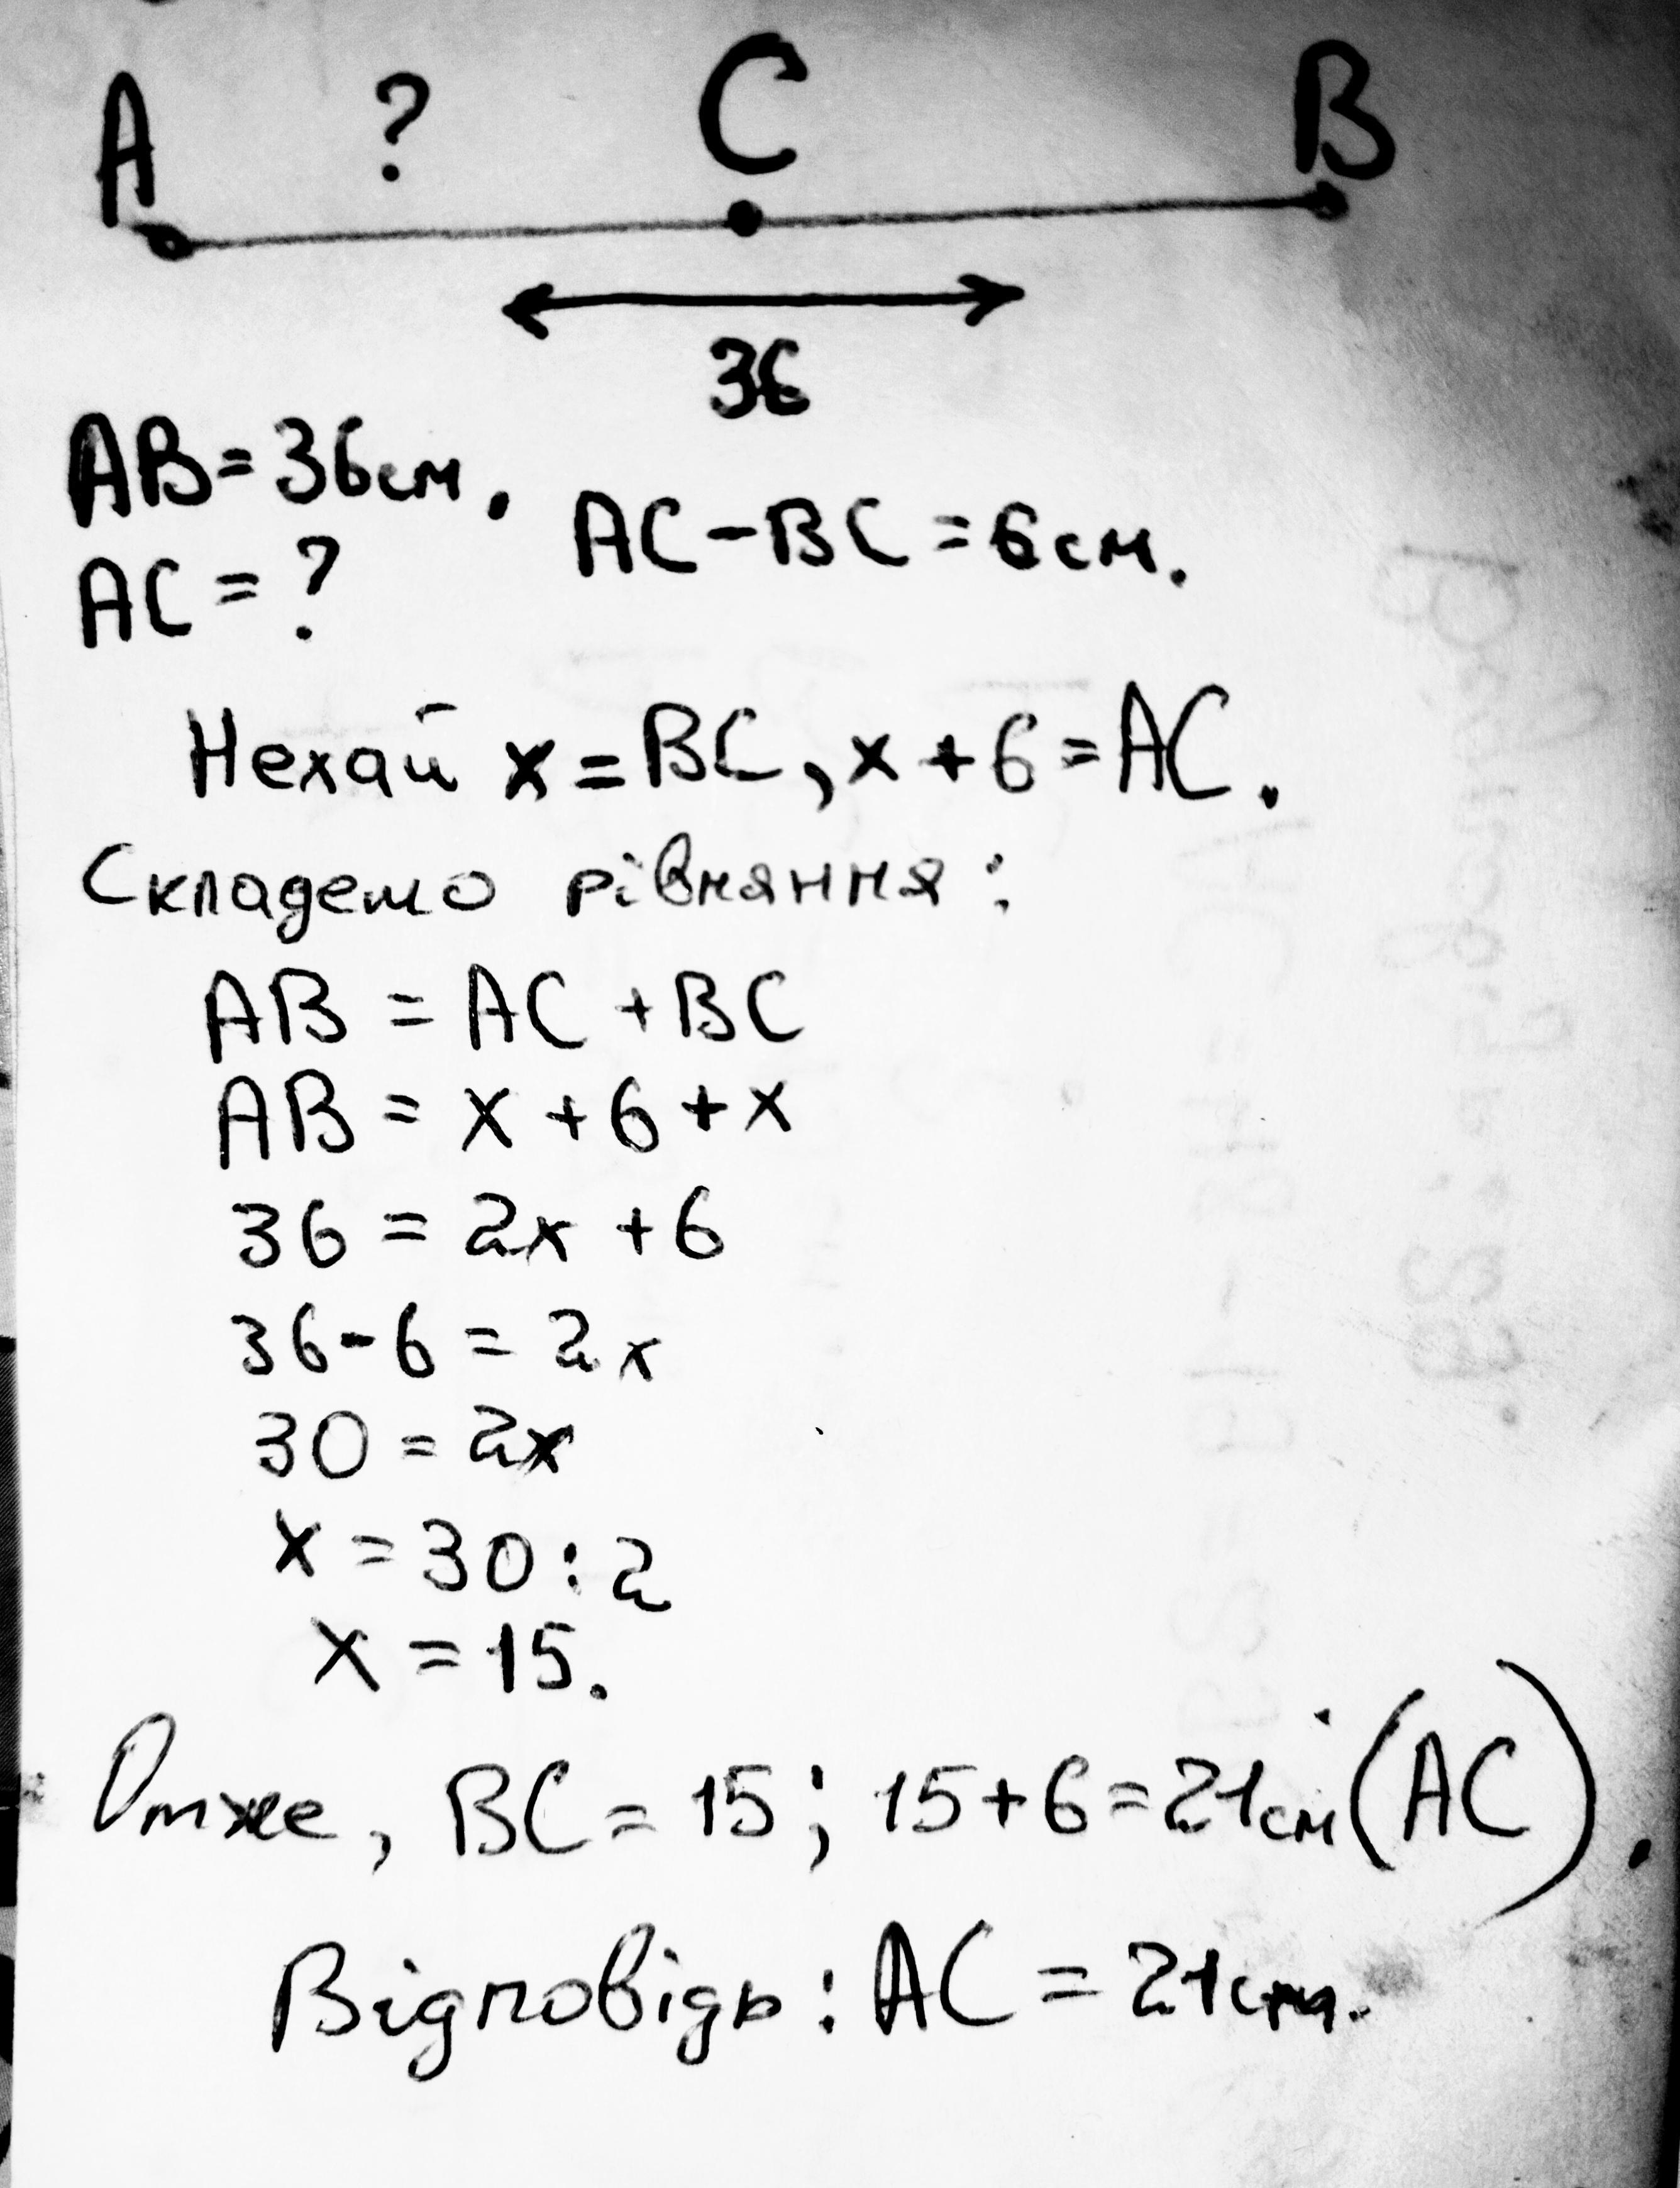 A ? C B
36
AB = 36см.
AC - BC = 6см.
AC = ?
Нехай x = BC, x + 6 = AC.
Складемо рівняння:
AB = AC + BC
AB = x + 6 + x
36 = 2x + 6
36 - 6 = 2x
30 = 2x
x = 30 : 2
x = 15.
Отже, BC = 15; 15 + 6 = 21см (AC).
Відповідь: AC = 21см.